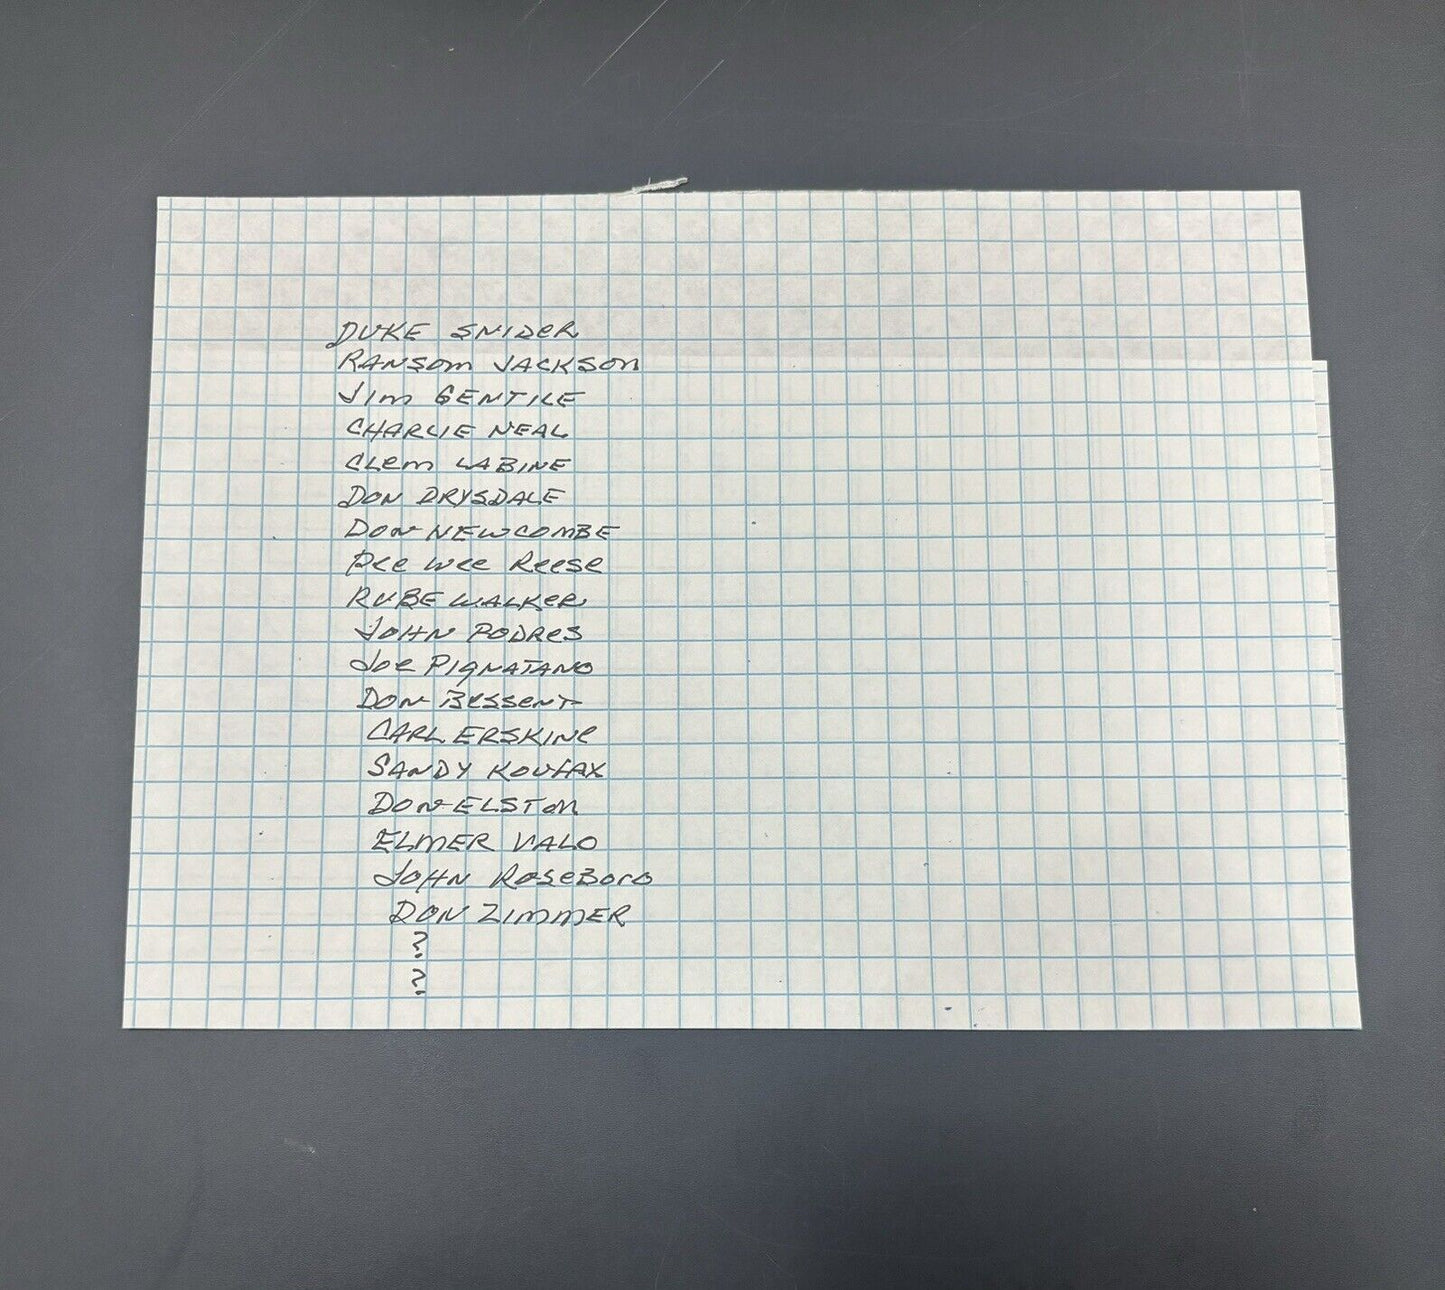 DUKE SNIDER
RANSOM JACKSON
JIM GENTILE
CHARLIE NEAL
CLEM LABINE
DON DRYSDALE
DON NEWCOMBE
Pee Wee Reese
RUBE WALKER
JOHN PODRES
Joe PIGNATANO
DON BESSENT
CARL ERSKINE
SANDY KOUFAX
DON ELSTON
ELMER VALO
JOHN ROSEBORO
DON ZIMMER
?
?